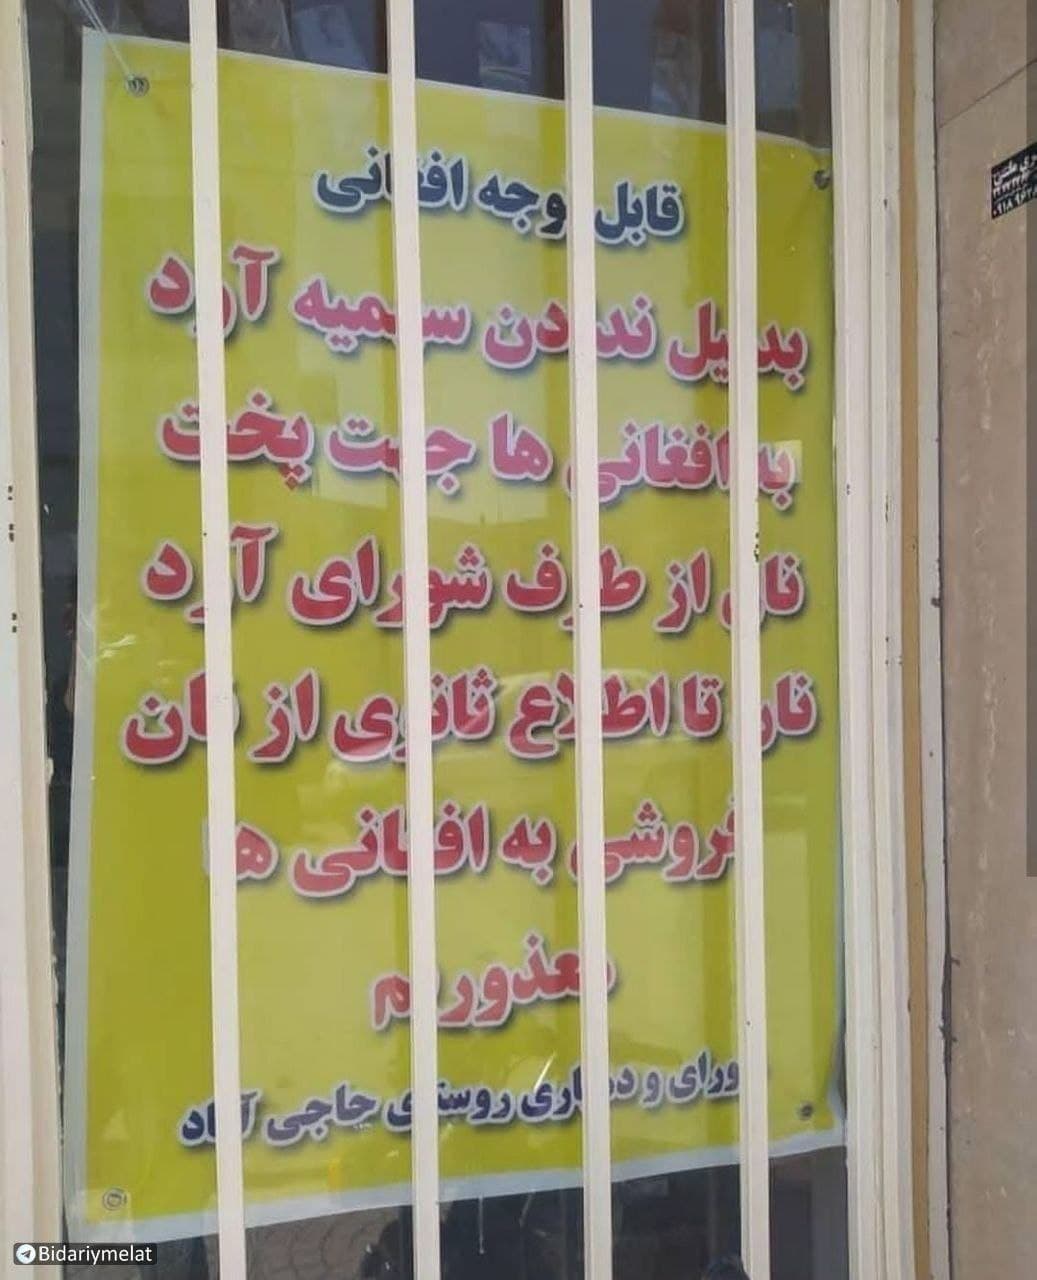 قابل توجه افغانی
بدلیل ندادن سهمیه آرد
به افغانی ها جهت پخت
نان از طرف شورای آرد
نان تا اطلاع ثانوی از نان
فروشی به افغانی ها
معذوریم
شورای و دهیاری روستای حاجی آباد
Bidariymelat